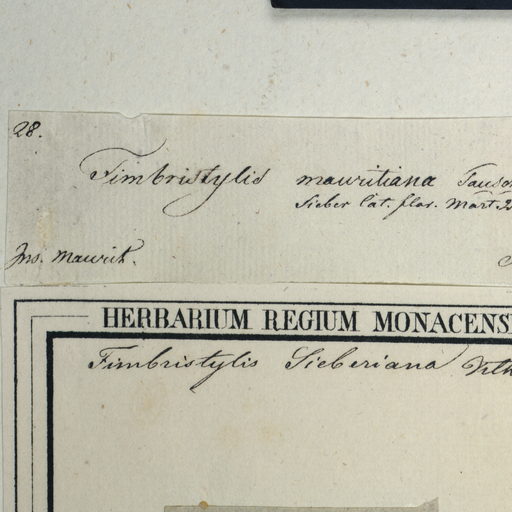 28.
Fimbristylis mauritiana Tausch
Sieber Cat. flor. Mart.
Ins. Maurit.
HERBARIUM REGIUM MONACENS
Fimbristylis Sieberiana